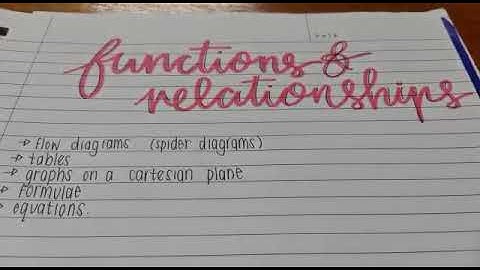 functions &
relationships
→ flow diagrams (spider diagrams)
→ tables
→ graphs on a cartesian plane
→ formulae
→ equations.